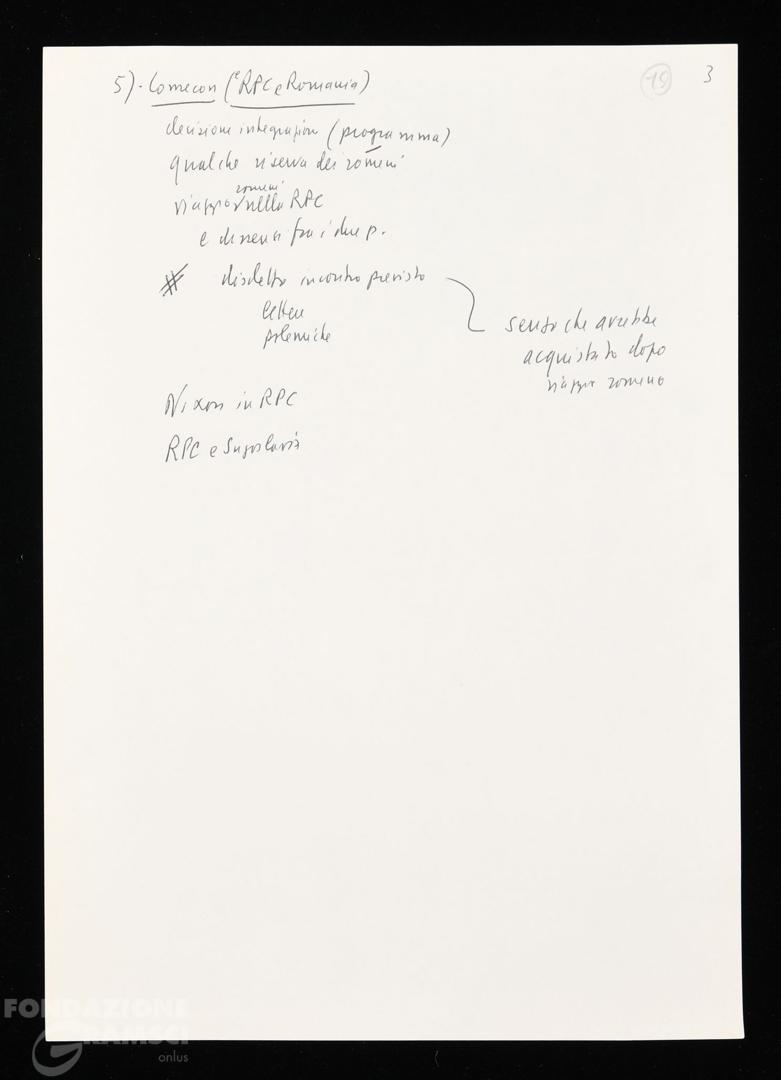 15
3
5)- Comecon (e RPC e Romania)
decisione integrazione (programma)
qualche riserva dei romeni
viaggio romeni nella RPC
e dissensi fra i due p.
# disdetto incontro previsto
lettere
polemiche
senso che avrebbe
acquistato dopo
viaggio romeno
Nixon in RPC
RPC e Jugoslavia
FONDAZIONE
GRAMSCI
onlus